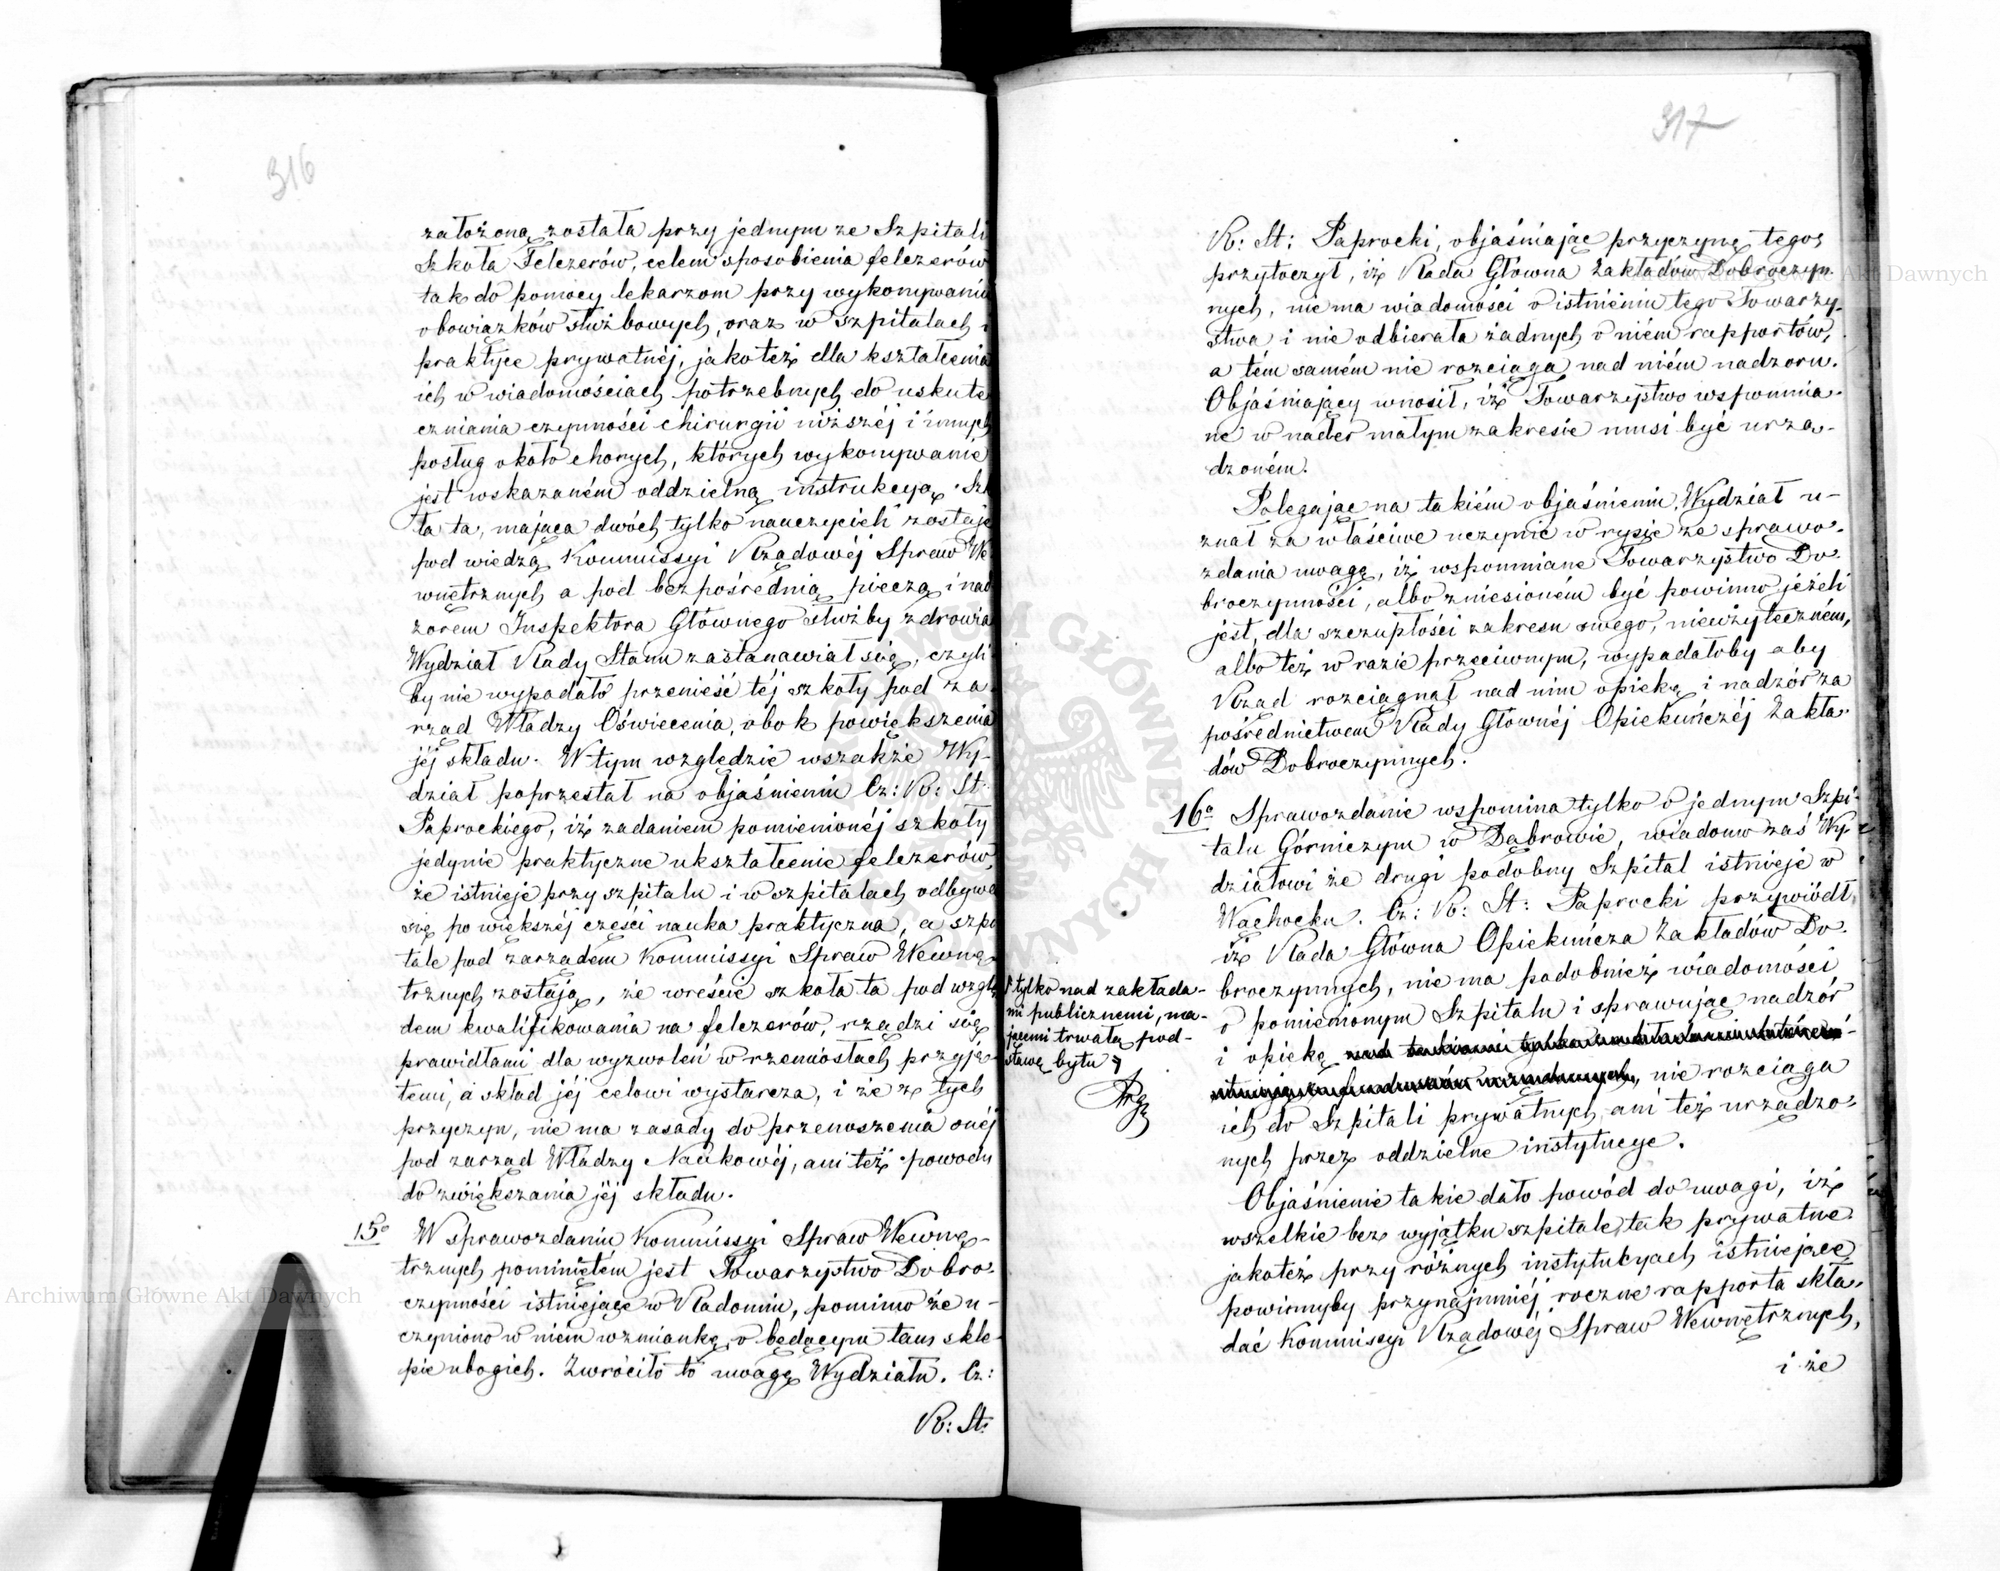 316
założoną została przy jednym ze Szpitali
Szkoła Felczerów, celem sposobienia felczerów
tak do pomocy lekarzom przy wykonywaniu
obowiązków służbowych, oraz w szpitalach i
praktyce prywatnéj, jakoteż dla kształcenia
ich w wiadomościach potrzebnych do uskute
czniania czynności chirurgii niższéj i innych
posług około chorych, których wykonywanie
jest wskazaném oddzielną instrukcyą. Szko
ła ta, mająca dwóch tylko nauczycieli zostaje
pod wiedzą Kommissyi Rządowéj Spraw We
wnętrznych a pod bezpośrednią pieczą i nad
zorem Inspektora Głównego służby zdrowia
Wydział Rady Stanu zastanawiał się, czyli
by nie wypadało przenieść téj szkoły pod za
rząd Władzy Oświecenia, obok powiększenia
jéj składu. W tym względzie wszakże Wy-
dział poprzestał na objaśnieniu Cz: R: St:
Paprockiego, iż zadaniem pomienionéj szkoły
jedynie praktyczne ukształcenie felczerów,
że istnieje przy szpitalu i w szpitalach odbywa
się po większéj części nauka praktyczna, a szpi
tale pod zarządem Kommissyi Spraw Wewnę-
trznych zostają, że wreście szkoła ta pod wzglę
dem kwalifikowania na felczerów, rządzi się
prawidłami dla wyzwoleń w rzemiosłach przyję-
temi, a skład jéj celowi wystarcza, i że z tych
przyczyn, nie ma zasady do przenoszenia onéj
pod zarząd Władzy Naukowéj, ani też powodu
do zwiększania jéj składu.
15o W sprawozdaniu Kommissyi Spraw Wewnę-
trznych pominiętém jest Towarzystwo Dobro-
czynności istniejące w Radomiu, pomimo że u-
czyniono w niem wzmiankę o będącym tam skle-
pie ubogich. Zwróciło to uwagę Wydziału. Cz:
R: St:
317
R: St: Paprocki, objaśniając przyczynę tegoż
przytoczył, iż Rada Główna Zakładów Dobroczyn
nych, nie ma wiadomości o istnieniu tego Towarzy-
stwa i nie odbierała żadnych o niém rapportów,
a tém samém nie rozciąga nad niém nadzoru.
Objaśniający wnosił, iż Towarzystwo wspomnia-
ne w nader małym zakresie musi być urzą-
dzoném.
Polegając na takiém objaśnieniu, Wydział u-
znał za właściwe uczynić w rysie ze sprawo-
zdania uwagę, iż wspomniane Towarzystwo Do-
broczynności, albo zniesioném być powinno jeżeli
jest, dla szczupłości zakresu swego, nieużyteczném,
albo też w razie przeciwnym, wypadałoby aby
Rząd rozciągnął nad nim opiekę i nadzór za
pośrednictwem Rady Głównéj Opiekuńczéj Zakła-
dów Dobroczynnych.
16o Sprawozdanie wspomina tylko o jednym Szpi-
talu Górniczym w Dąbrowie, wiadomo zaś Wy-
działowi że drugi podobny Szpital istnieje w
Wąchocku. Cz: R: St: Paprocki przywiódł,
iż Rada Główna Opiekuńcza Zakładów Do-
broczynnych, nie ma podobnież wiadomości
o pomienionym Szpitalu i sprawując nadzór
i opiekę
tylko nad zakłada-
mi publicznemi, ma-
jącemi trwałą pod-
stawę bytu
nie rozciąga
ich do Szpitali prywatnych, ani też urządzo-
nych przez oddzielne instytucye.
Objaśnienie takie dało powód do uwagi, iż
wszelkie bez wyjątku szpitale, tak prywatne
jakoteż przy różnych instytucyach istniejące,
powinnyby przynajmniéj roczne rapporta skła-
dać Kommissyi Rządowéj Spraw Wewnętrznych,
i że
Archiwum Główne Akt Dawnych